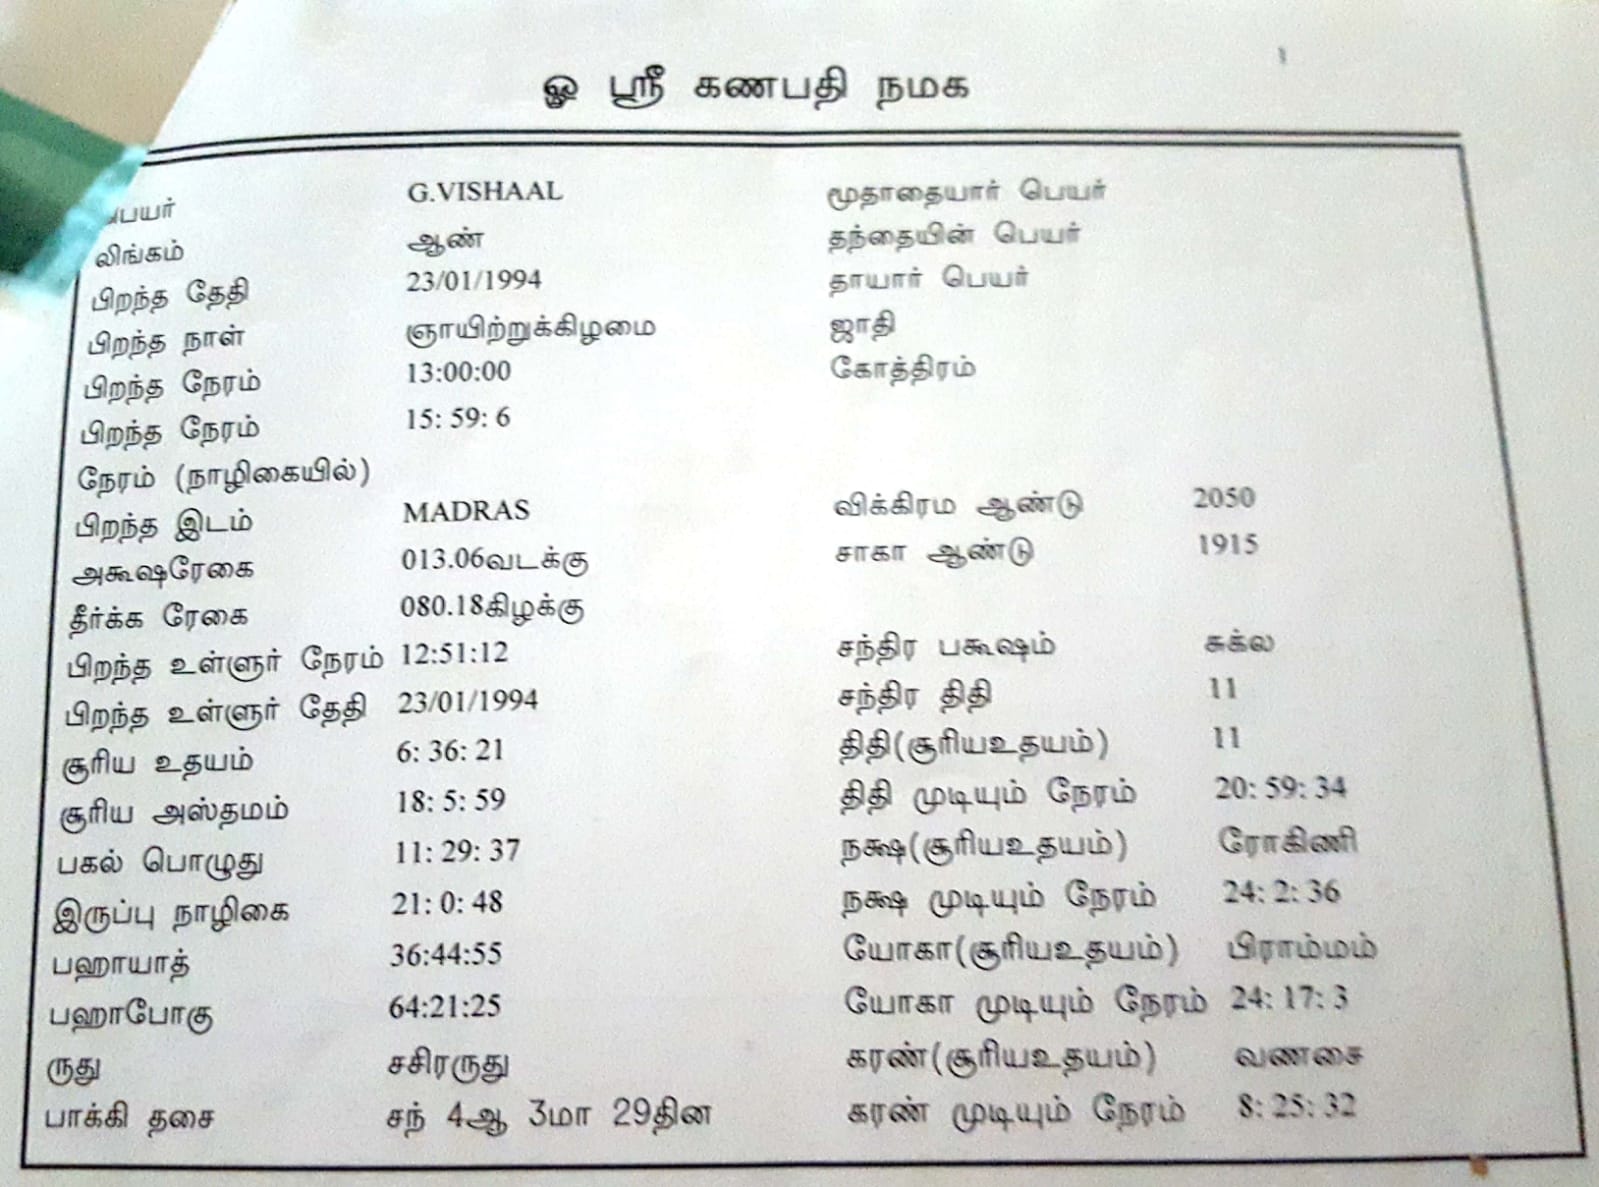 ஓ ஸ்ரீ கணபதி நமக
பெயர் G.VISHAAL மூதாதையார் பெயர்
லிங்கம் ஆண் தந்தையின் பெயர்
பிறந்த தேதி 23/01/1994 தாயார் பெயர்
பிறந்த நாள் ஞாயிற்றுக்கிழமை ஜாதி
பிறந்த நேரம் 13:00:00 கோத்திரம்
பிறந்த நேரம் 15: 59: 6
நேரம் (நாழிகையில்)
பிறந்த இடம் MADRAS விக்கிரம ஆண்டு 2050
அகூஷரேகை 013.06வடக்கு சாகா ஆண்டு 1915
தீர்க்க ரேகை 080.18கிழக்கு
பிறந்த உள்ளுர் நேரம் 12:51:12 சந்திர பகூஷம் சுக்ல
பிறந்த உள்ளுர் தேதி 23/01/1994 சந்திர திதி 11
சூரிய உதயம் 6: 36: 21 திதி(சூரியஉதயம்) 11
சூரிய அஸ்தமம் 18: 5: 59 திதி முடியும் நேரம் 20: 59: 34
பகல் பொழுது 11: 29: 37 நக்ஷ(சூரியஉதயம்) ரோகிணி
இருப்பு நாழிகை 21: 0: 48 நக்ஷ முடியும் நேரம் 24: 2: 36
பஹாயாத் 36:44:55 யோகா(சூரியஉதயம்) பிராம்மம்
பஹாபோகு 64:21:25 யோகா முடியும் நேரம் 24: 17: 3
ருது சசிரருது கரண்(சூரியஉதயம்) வணசை
பாக்கி தசை சந் 4ஆ 3மா 29தின கரண் முடியும் நேரம் 8: 25: 32